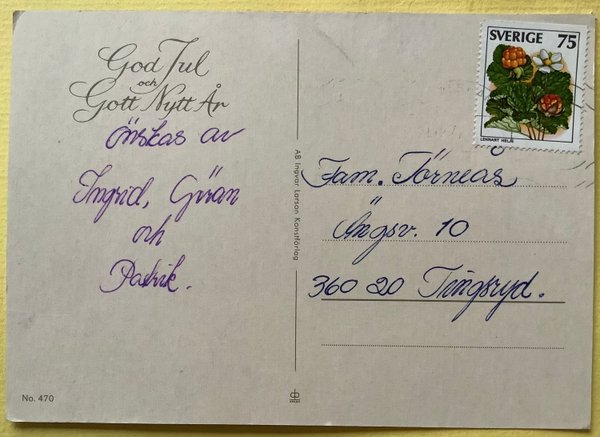 God Jul
och
Gott Nytt År
önskas av
Ingrid, Göran
och
Patrik.
No. 470
AB Ingvar Larson Konstförlag
SVERIGE 75
LENNART HELJE
Fam. Törneås
Ängsv. 10
360 20 Tingsryd.